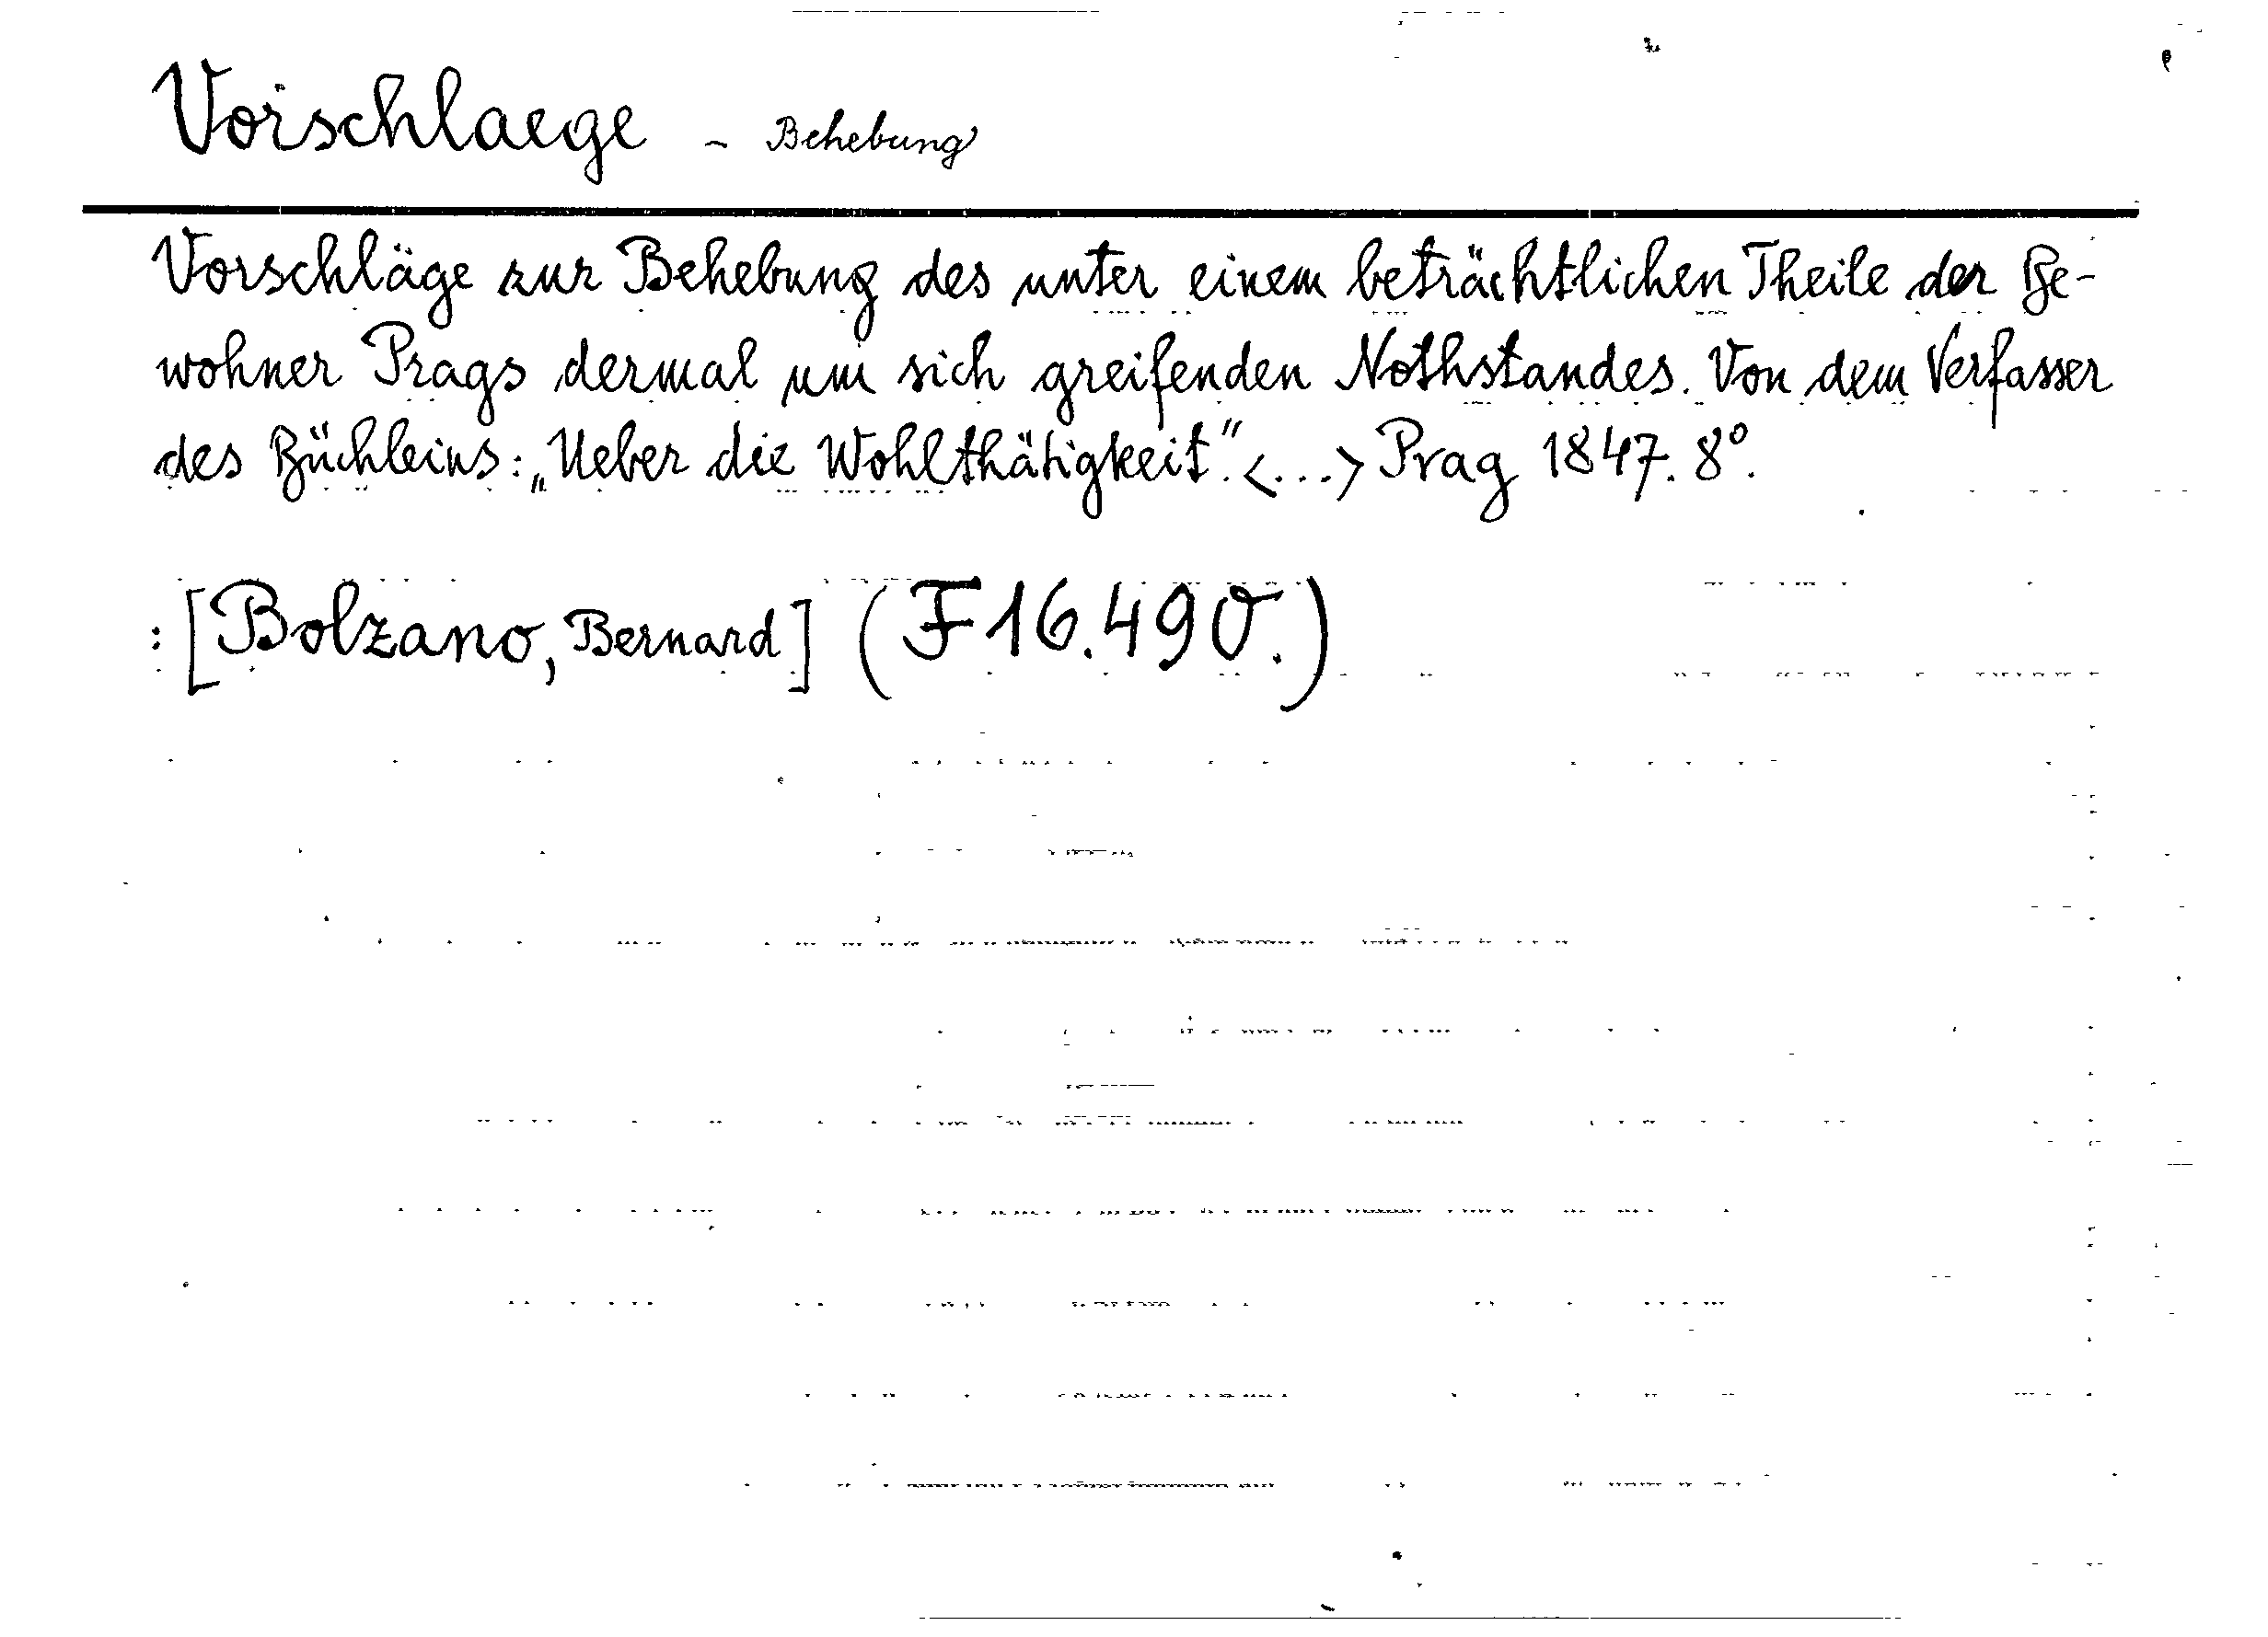 Vorschlaege - Behebung
Vorschläge zur Behebung des unter einem beträchtlichen Theile der Be-
wohner Prags dermal um sich greifenden Nothstandes. Von dem Verfasser
des Büchleins: „Ueber die Wohlthätigkeit." <...> Prag 1847. 8°.
: [Bolzano, Bernard] (F 16.490.)